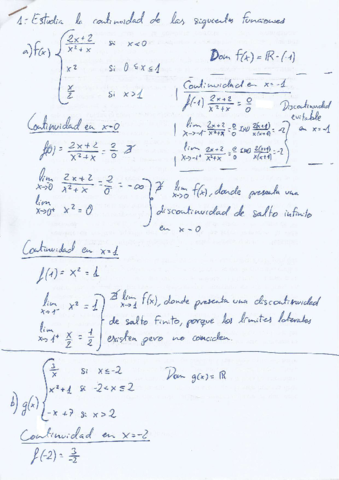 1.- Estudia la continuidad de las siguientes funciones
a) f(x) { (2x+2)/(x²+x) si x<0
x² si 0≤x≤1
x/2 si x>1
Dom f(x) = ℝ - (-1)
Continuidad en x=-1
f(-1) (2x+2)/(x²+x) = 0/0
lim x→-1⁻ (2x+2)/(x²+x) = 0/0 IND 2(x+1)/x(x+1) = -2
lim x→-1⁺ (2x+2)/(x²+x) = 0/0 IND 2(x+1)/x(x+1) = -2
Discontinuidad evitable en x=-1
Continuidad en x=0
f(0) = (2x+2)/(x²+x) = 2/0 ∄
lim x→0⁻ (2x+2)/(x²+x) = 2/0 = -∞
lim x→0⁺ x² = 0
∄ lim x→0 f(x), donde presenta una
discontinuidad de salto infinito
en x=0
Continuidad en x=1
f(1) = x² = 1
lim x→1⁻ x² = 1
lim x→1⁺ x/2 = 1/2
∄ lim x→1 f(x), donde presenta una discontinuidad
de salto finito, porque los límites laterales
existen pero no coinciden.
b) g(x) { 3/x si x≤-2
x²+1 si -2<x≤2
-x+7 si x>2
Dom g(x) = ℝ
Continuidad en x=-2
f(-2) = 3/-2